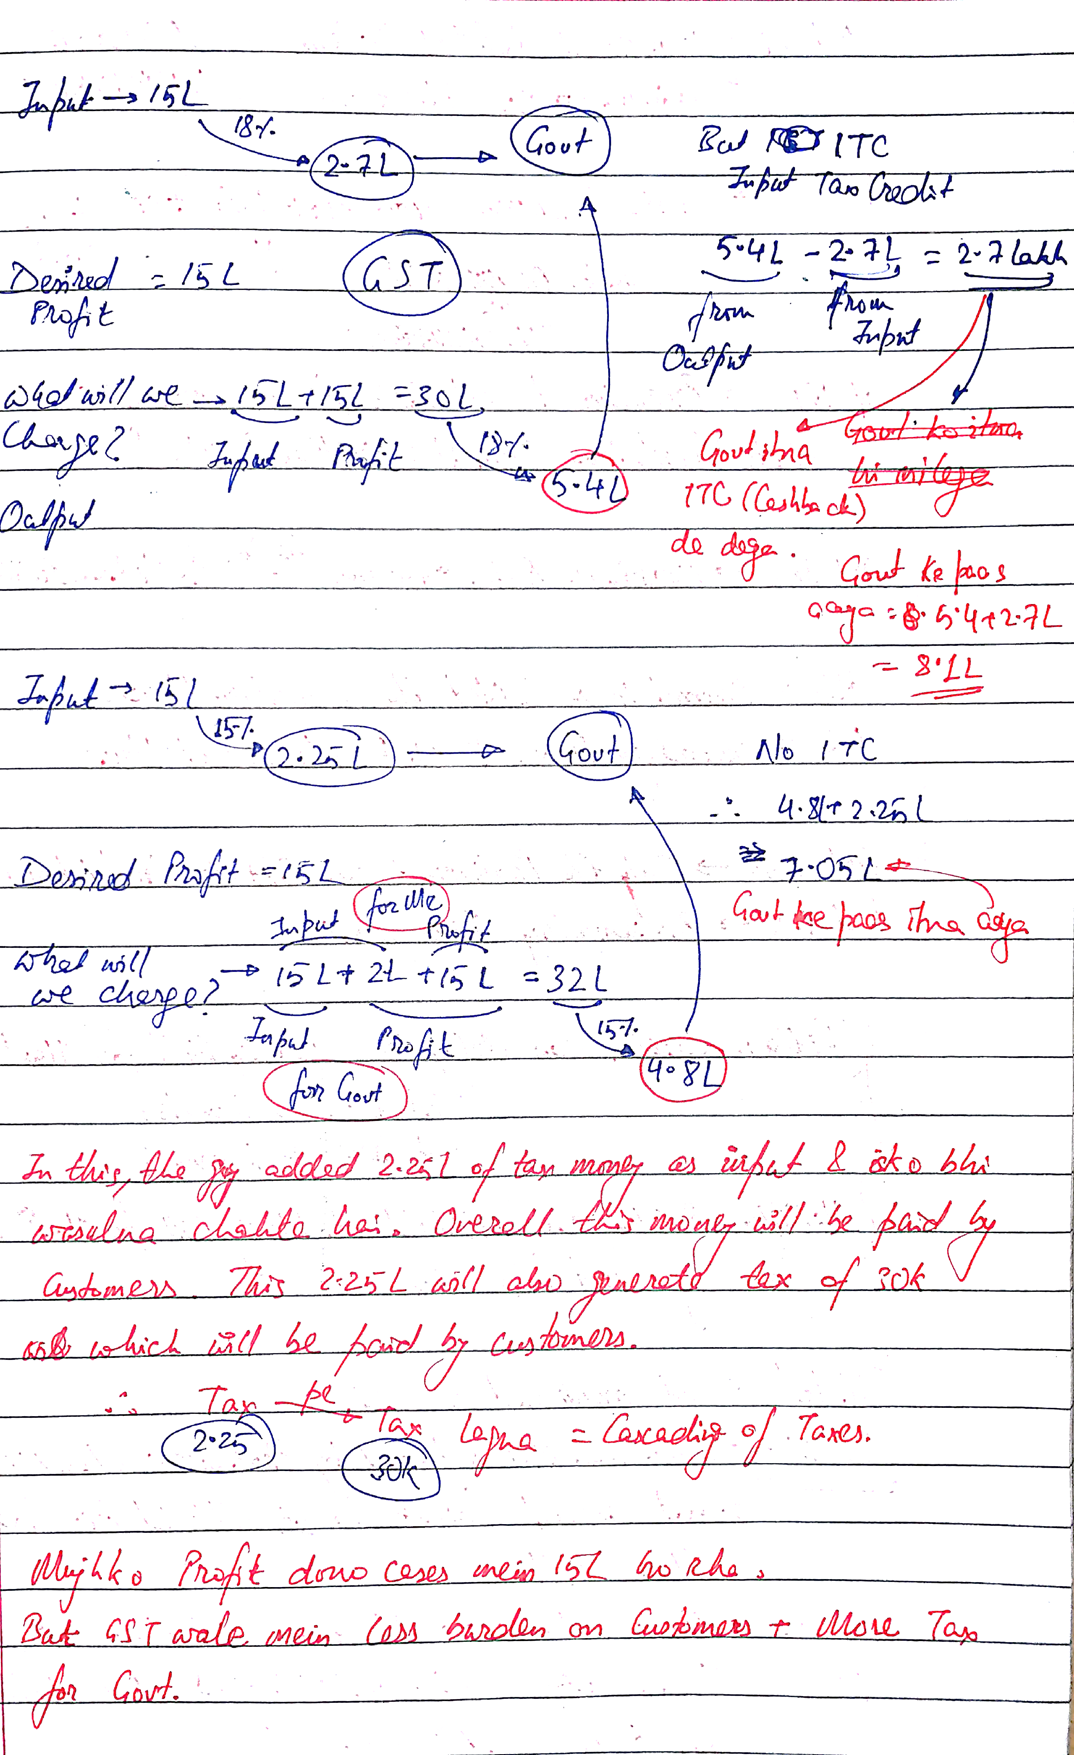 Input → 15L
18%
2.7L → Govt
But ITC
Input Tax Credit
5.4L - 2.7L = 2.7 lakh
from Output
from Input
Desired Profit = 15L
GST
What will we Charge? → 15L + 15L = 30L
Input Profit
18%
5.4L
Output
Govt ko itna hi milega
Govt itna
ITC (Cashback)
de dega.
Govt ke paas
aaya = 5.4+2.7L
= 8.1L
Input → 15L
15%
2.25L → Govt
No ITC
∴ 4.8L+2.25L
7.05L
Govt ke paas itna aaya
Desired Profit = 15L
Input for Me Profit
What will we charge? → 15L + 2L + 15L = 32L
Input Profit
15%
for Govt
4.8L
In this, the guy added 2.25L of tax money as input & isko bhi
wasulna chahta hai. Overall this money will be paid by
Customers. This 2.25L will also generate tax of 30k
which will be paid by customers.
∴ Tax pe Tax lagna = Cascading of Taxes.
2.25 30k
Mujhko Profit dono cases mein 15L ho rha.
But GST wale mein less burden on Customers + More Tax
for Govt.